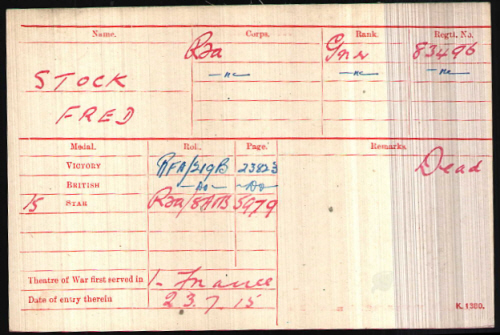 Name. Corps. Rank. Regtl. No.
RFA Gnr 83496
— " — — " — — " —
STOCK
FRED
Medal. Roll. Page. Remarks.
VICTORY RFA/219B 23823 Dead
BRITISH — Do — — Do
15 STAR RFA/8 5979
Theatre of War first served in 1. France
Date of entry therein 23.7.15
K. 1380.